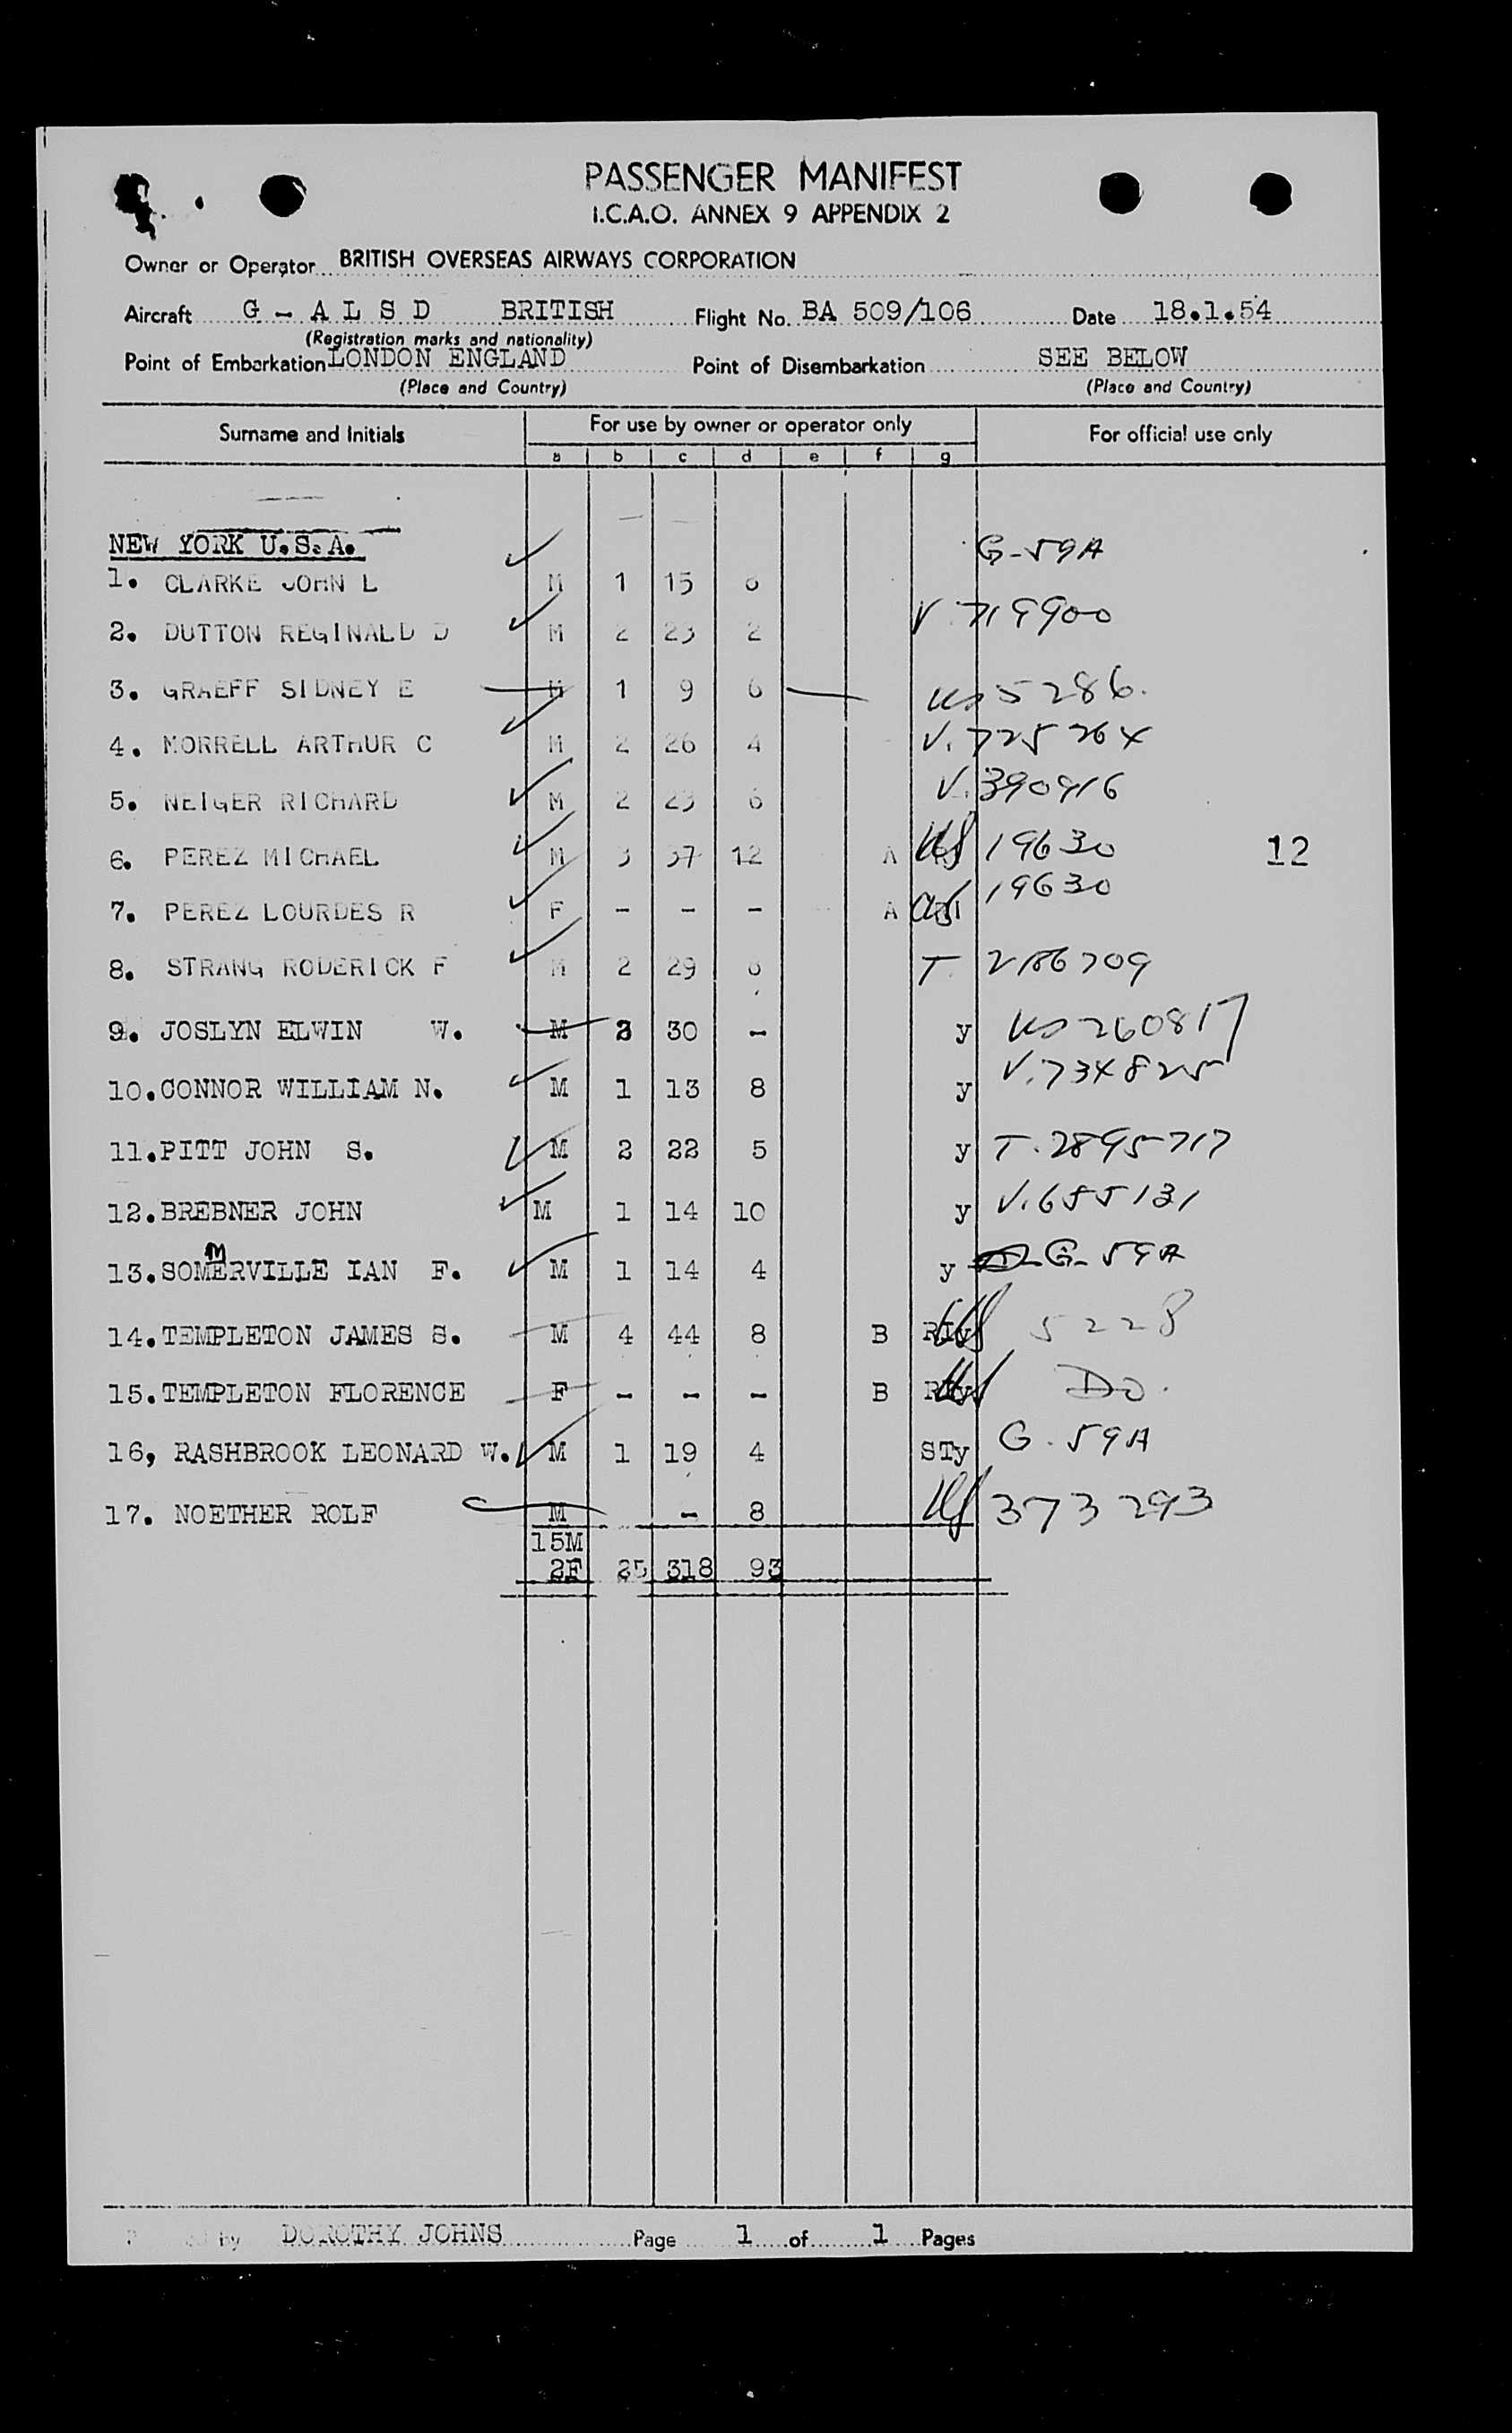 PASSENGER MANIFEST
I.C.A.O. ANNEX 9 APPENDIX 2
Owner or Operator BRITISH OVERSEAS AIRWAYS CORPORATION
Aircraft G - A L S D BRITISH Flight No. BA 509/106 Date 18.1.54
(Registration marks and nationality)
Point of Embarkation LONDON ENGLAND Point of Disembarkation SEE BELOW
(Place and Country) (Place and Country)
Surname and Initials For use by owner or operator only For official use only
a b c d e f g
NEW YORK U.S.A. G-59A
1. CLARKE JOHN L M 1 15 6
2. DUTTON REGINALD D M 2 23 2 V. 719900
3. GRAEFF SIDNEY E M 1 9 6 US 5286.
4. MORRELL ARTHUR C M 2 26 4 V. 725264
5. NEIGER RICHARD M 2 23 6 V. 390916
6. PEREZ MICHAEL M 3 37 12 A US 19630 12
7. PEREZ LOURDES R F - - - A US 19630
8. STRANG RODERICK F M 2 29 8 T. 2186709
9. JOSLYN ELWIN W. M 3 30 - y US 260817
10. CONNOR WILLIAM N. M 1 13 8 y V. 734825
11. PITT JOHN S. M 2 22 5 y T. 2895717
12. BREBNER JOHN M 1 14 10 y V. 655131
13. SOMERVILLE IAN F. M 1 14 4 y G-59A
14. TEMPLETON JAMES S. M 4 44 8 B US 5228
15. TEMPLETON FLORENCE F - - - B US Do.
16, RASHBROOK LEONARD W. M 1 19 4 STy G-59A
17. NOETHER ROLF M - 8 US 373293
15M
2F 25 318 93
by DOROTHY JOHNS Page 1 of 1 Pages